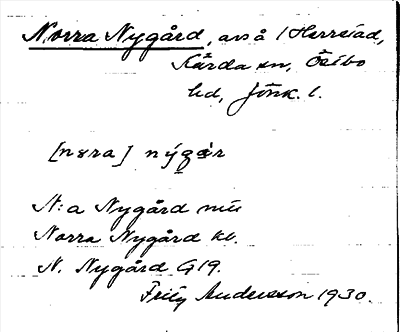 Norra Nygård, avs å /Herrestad,
Kärda sn, Östbo
hd, Jönk. l.
[nɔra] nýgår
N:a Nygård
Norra Nygård
N. Nygård G19.
Fritz Andersson 1930.